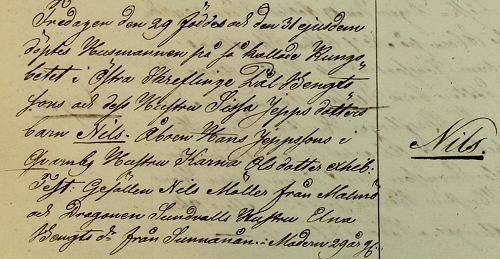 Fredagen den 29 föddes och den 31 ejusdem
döptes Husmannen på så kallade Kungs
betet i Östra Skreflinge Pål Bengts
sons och dess Hustru Sissa Jepps dotters
barn Nils. Åboen Hans Jeppssons i
Qvernby Hustru Karna Ols dotter exhib.
Test: Gesällen Nils Möller från Malmö
och Dragonen Sundvalls Hustru Elna
Bengts dr från Sunnanån. Modern 29 år g.
Nils.